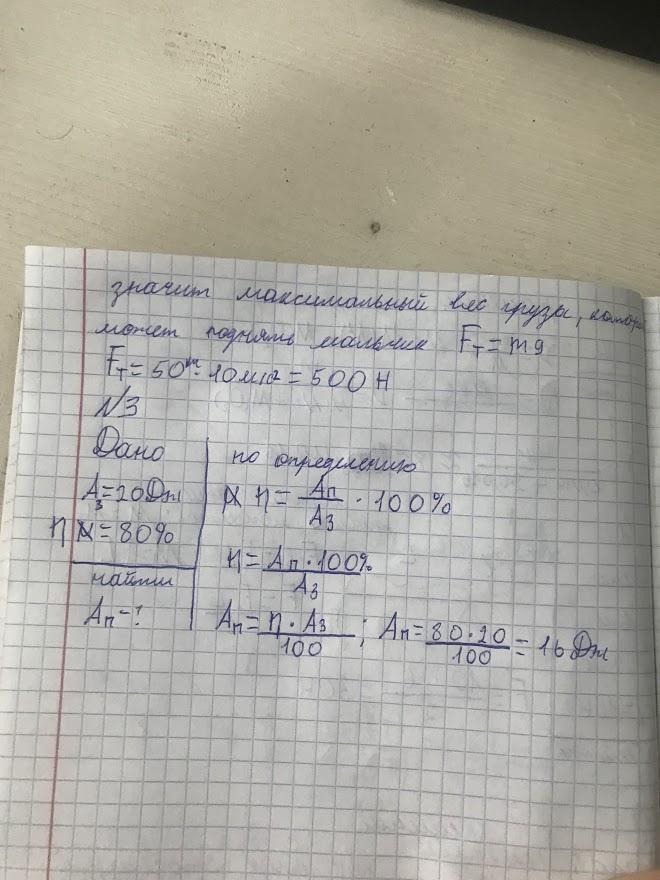 значит максимальный вес груза, котор
может поднять мальчик Fт = mg
Fт = 50 кг · 10 м/с² = 500 Н
N3
Дано
Aз = 20 Дж
η = 80%
найти
Aп - ?
по определению
η = Aп/Aз · 100%
η = Aп · 100%/Aз
Aп = η · Aз/100 ; Aп = 80 · 20/100 = 16 Дж